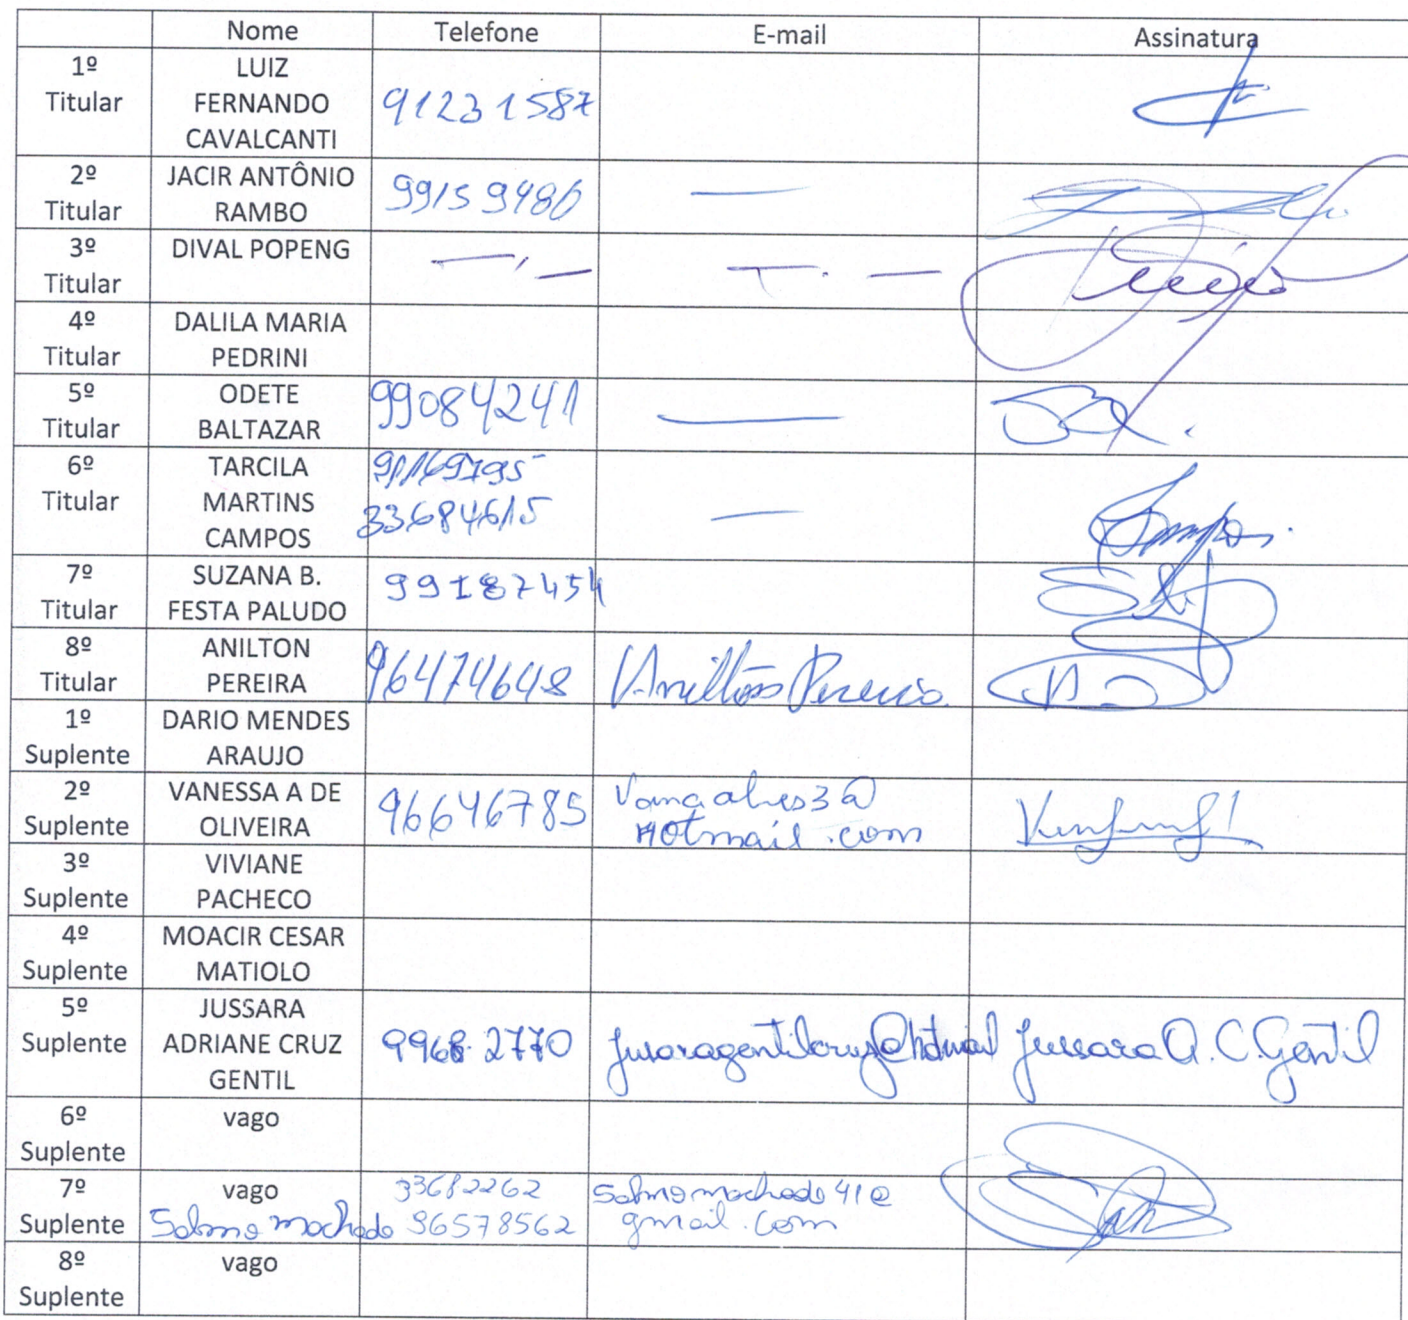 Nome Telefone E-mail Assinatura
1º Titular LUIZ FERNANDO CAVALCANTI 91231587
2º Titular JACIR ANTÔNIO RAMBO 99159480 —
3º Titular DIVAL POPENG — —
4º Titular DALILA MARIA PEDRINI
5º Titular ODETE BALTAZAR 99084241 —
6º Titular TARCILA MARTINS CAMPOS 33684615 — Campos
7º Titular SUZANA B. FESTA PALUDO 99187454
8º Titular ANILTON PEREIRA 96474648 Anilton Pereira
1º Suplente DARIO MENDES ARAUJO
2º Suplente VANESSA A DE OLIVEIRA 96646785 Hotmail.com
3º Suplente VIVIANE PACHECO
4º Suplente MOACIR CESAR MATIOLO
5º Suplente JUSSARA ADRIANE CRUZ GENTIL 9968.2770 Jussara A. C. Gentil
6º Suplente vago
7º Suplente vago machado 33682262 96578562 gmail.com
8º Suplente vago